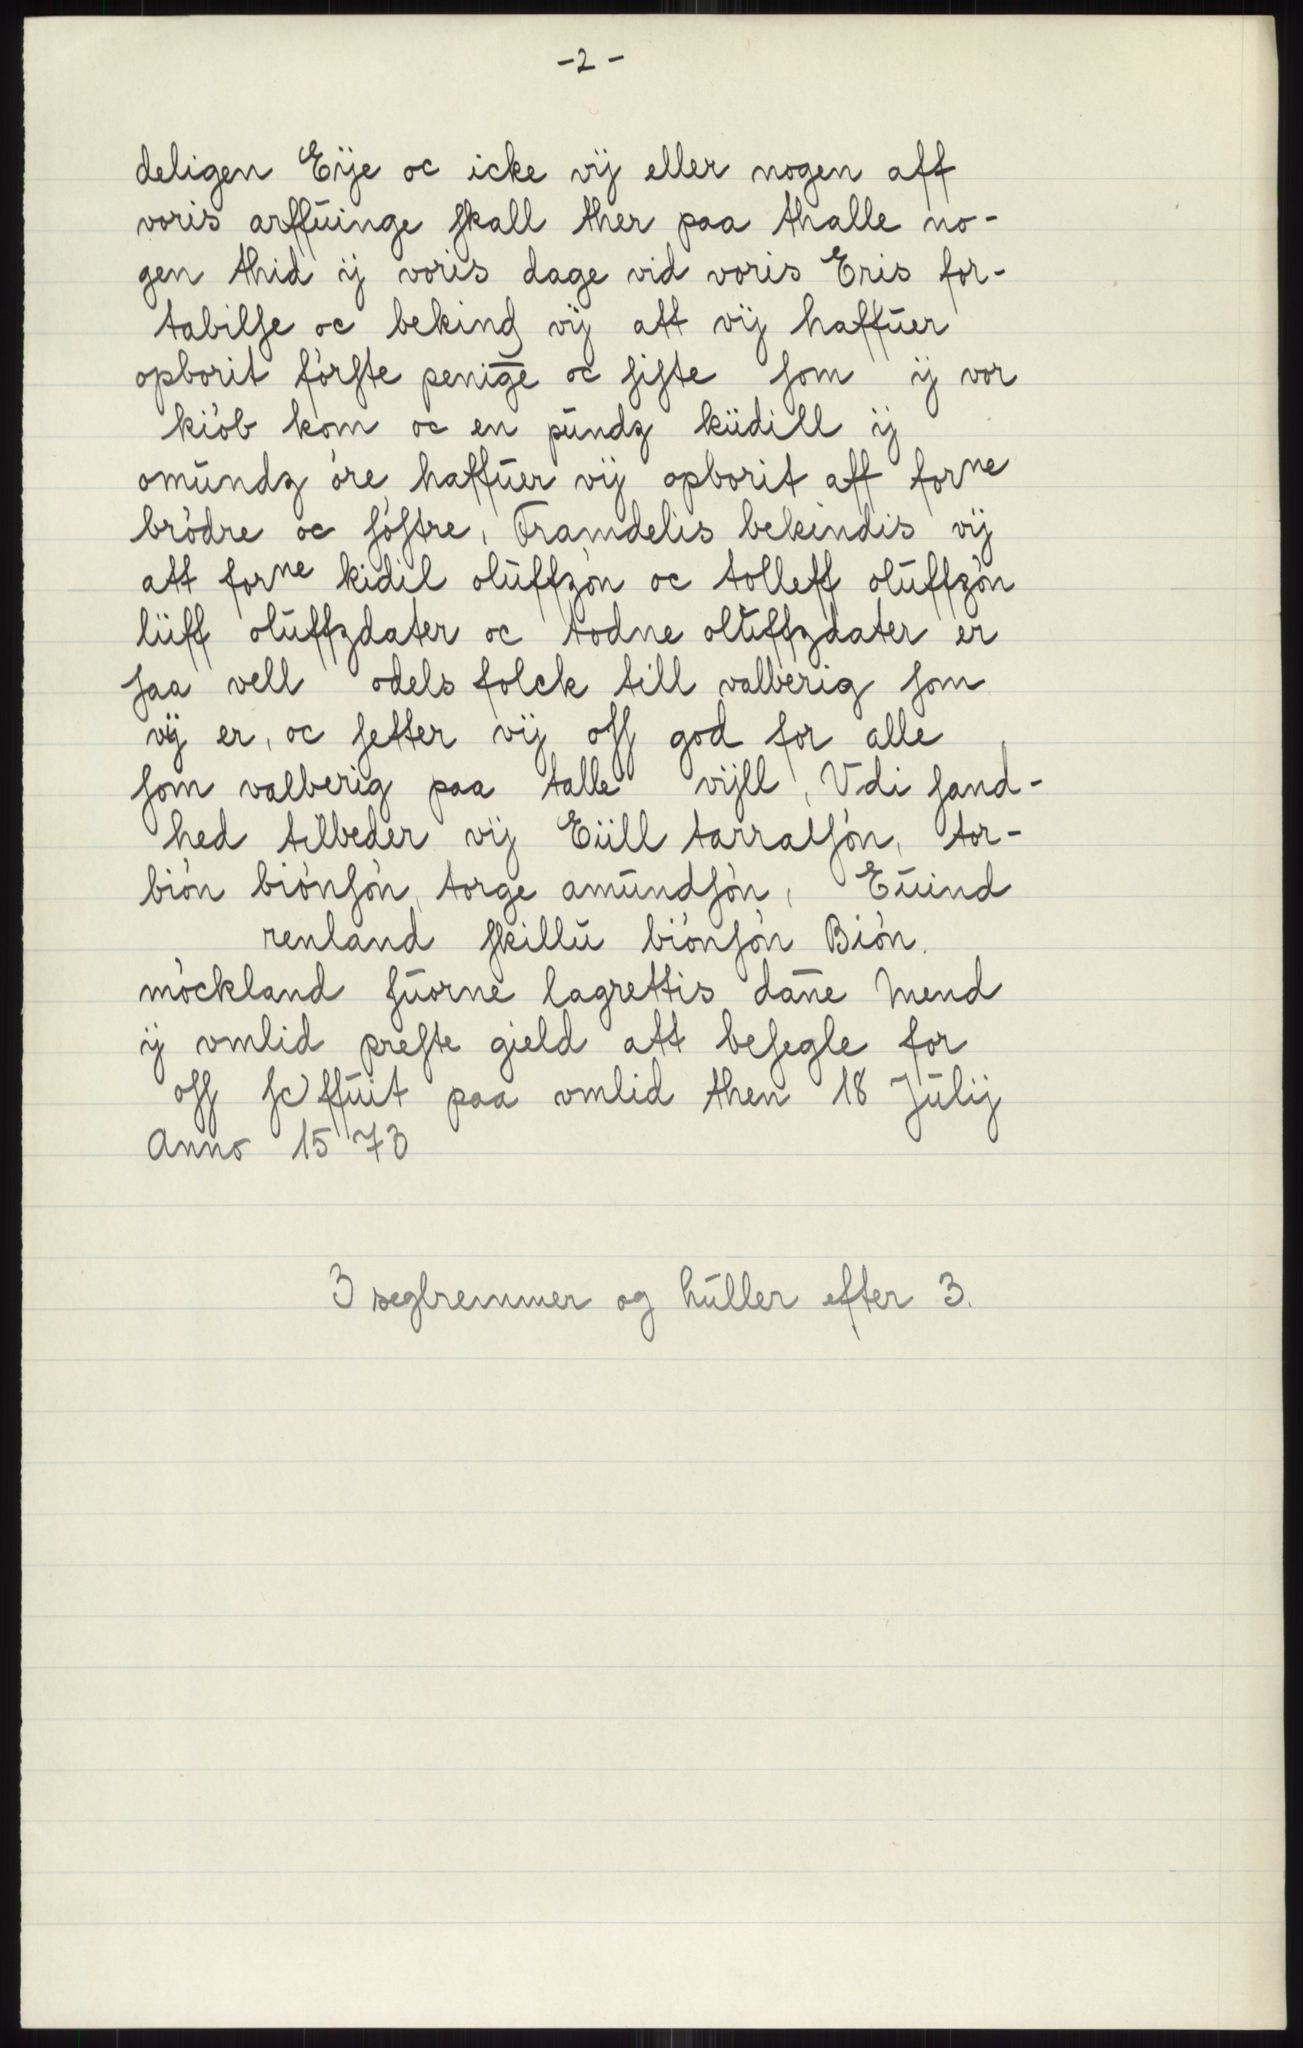 -2-
deligen Eÿe oc icke vÿ eller nogen aff
voris arffuinge skall ther paa thalle no-
gen thid ÿ voris dage vid voris Eris for-
tabilse oc bekind vÿ att vÿ haffuer
opborit förste penige oc siste som ÿ vor
kiöb kom oc en pundz küdill ÿ
omundz öre haffuer vÿ opborit aff forne
brödre oc söstre, Framdelis bekindis vÿ
att forne kidil oluffzön oc tolleff oluffzön
lüff oluffzdater oc todne oluffzdater er
saa vell odels folck till valberig som
vÿ er, oc setter vÿ oss god for alle
som valberig paa talle vÿll, Vdi sand-
hed tilbeder vÿ Eüll tarralsön, tor-
biön biönsön, torge amundsön, Euind
renland skillu biönsön Biön
möckland suorne lagrettis dan̄e mend
ÿ vmlid preste gield att besegle for
oss sc'ffuit paa vmlid then 18 Julÿ
Anno 1573
3 seglremmer og huller efter 3.